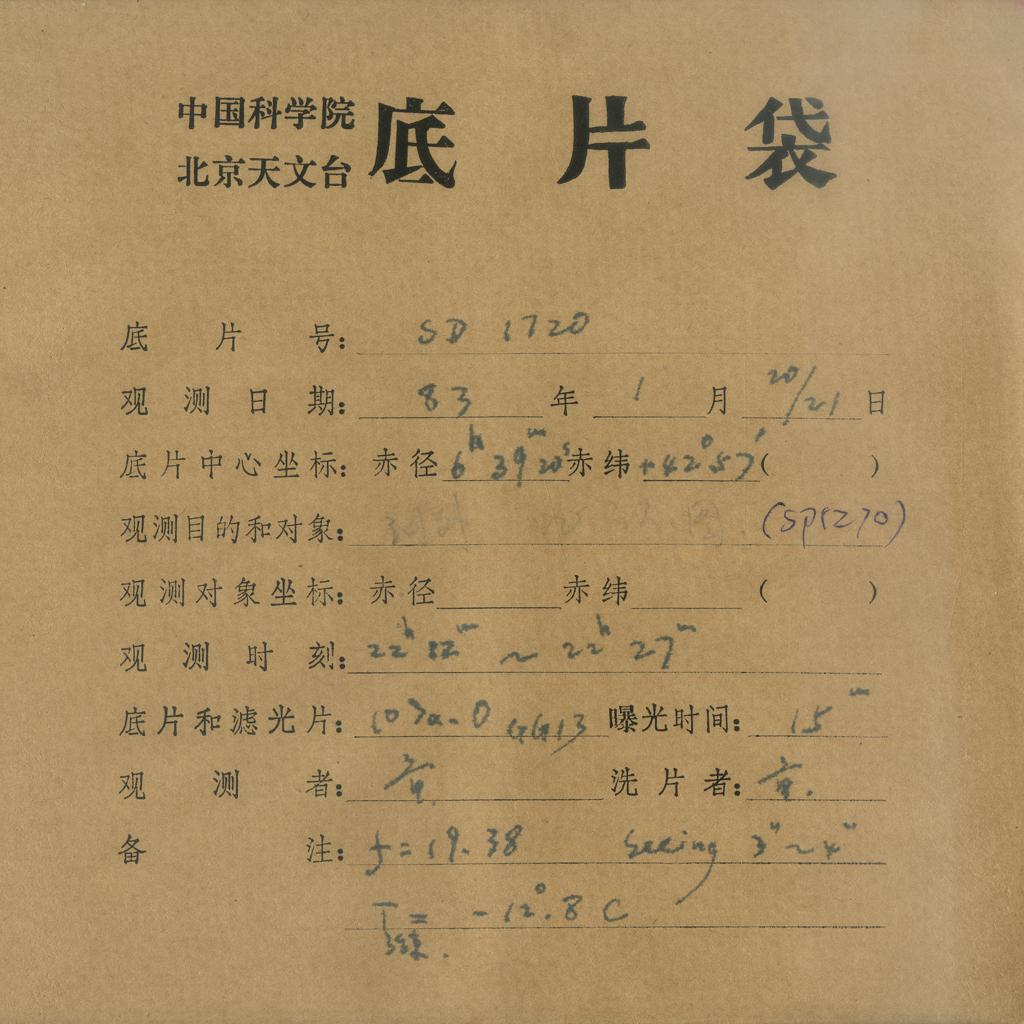 中国科学院
北京天文台
底片袋
底片号： SD 1720
观测日期： 83 年 1 月 20/21 日
底片中心坐标：赤径 6h 39m 20s 赤纬 +42°57′ ( )
观测目的和对象： 图 (SP1270)
观测对象坐标：赤径 赤纬 ( )
观测时刻： 22h 12m ~ 22h 27m
底片和滤光片： 103a-O GG13 曝光时间： 15m
观测者： 洗片者：
备注： f=19.38 Seeing 3″~4″
T= -12°.8 C